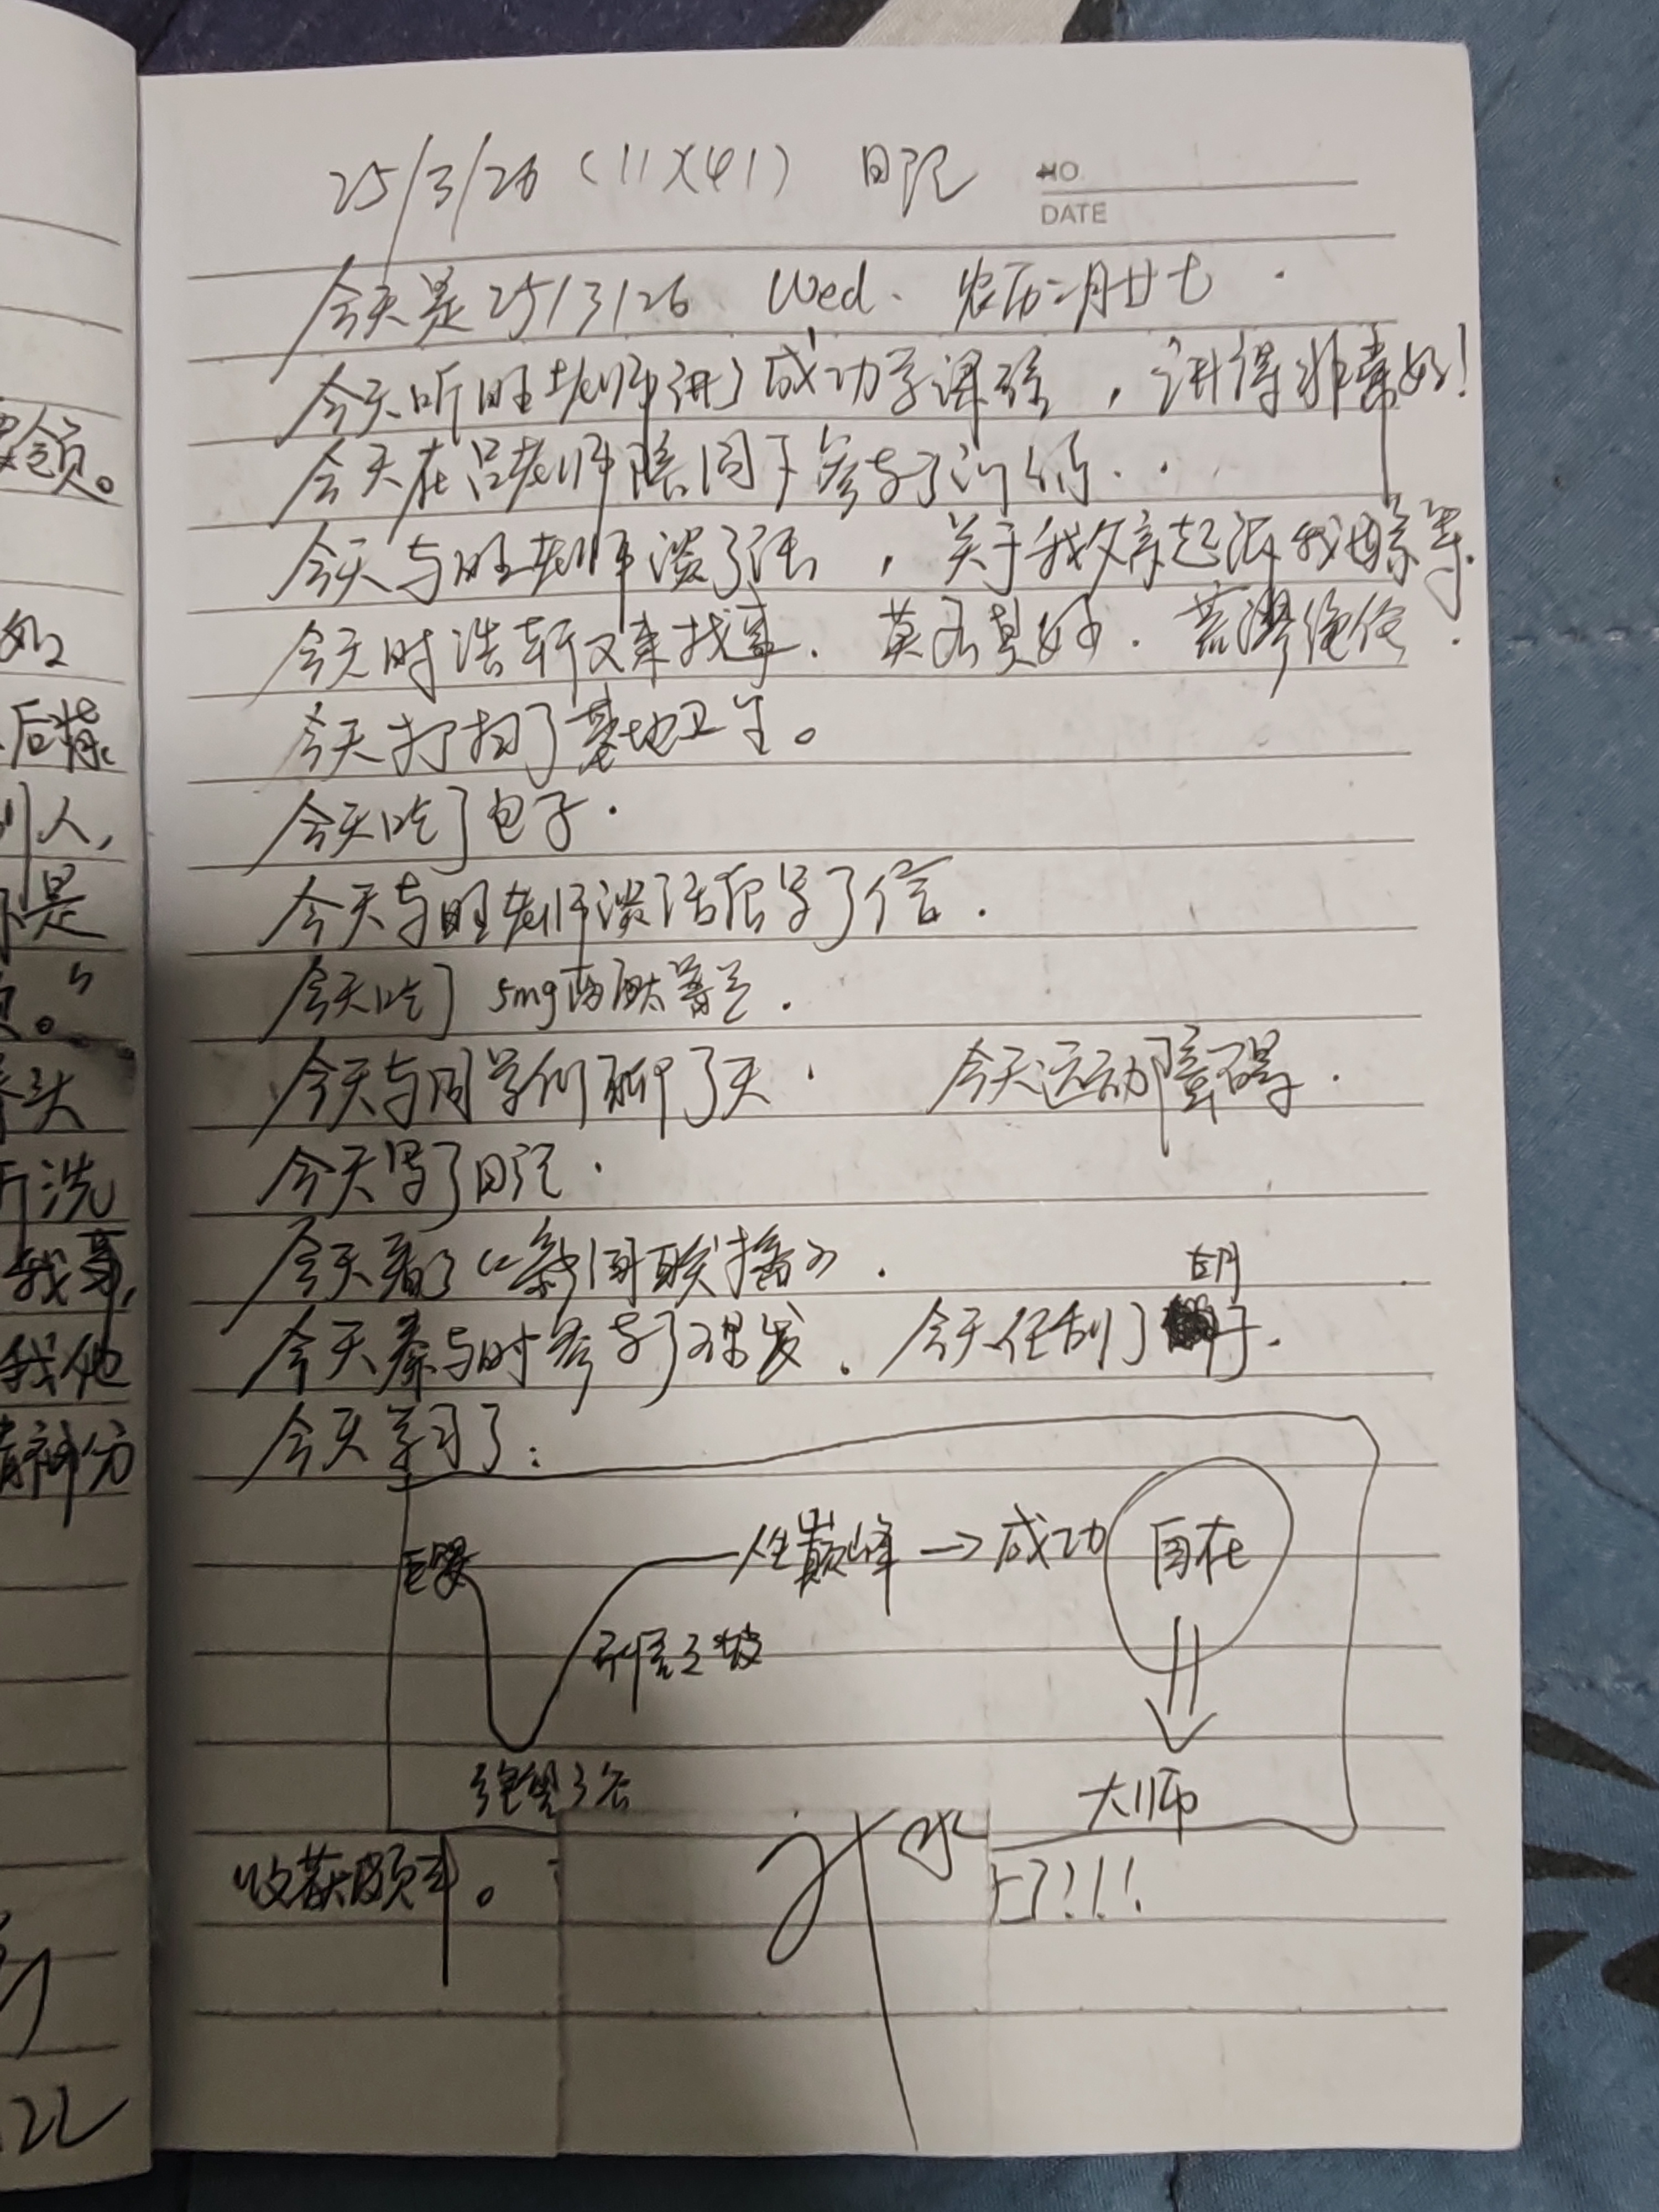 25/3/26 (11)(41) 日记
NO
DATE
今天是25/3/26 Wed. 农历二月廿七.
今天听旺老师讲了成功学课程，讲得非常好！
今天在吕老师陪同下参与了
今天与旺老师谈了话，关于我父亲起诉我母亲等.
今天时浩轩又来找事.莫名其妙.荒谬绝伦.
今天打扫了基地卫生。
今天吃了包子.
今天与旺老师谈话后写了信.
今天吃了5mg
今天与同学们聊了天. 今天运动障碍.
今天写了日记.
今天看了《新闻联播》.
今天秦与时参与了理发.今天任刮了胡子.
今天学习了:
巨婴 人生巅峰→成功 自在
开悟之坡
绝望之谷 大师
收获颇丰。
要领。
如
后背
别人,
不是
"
拳头
洗
我
我他
精神分
22